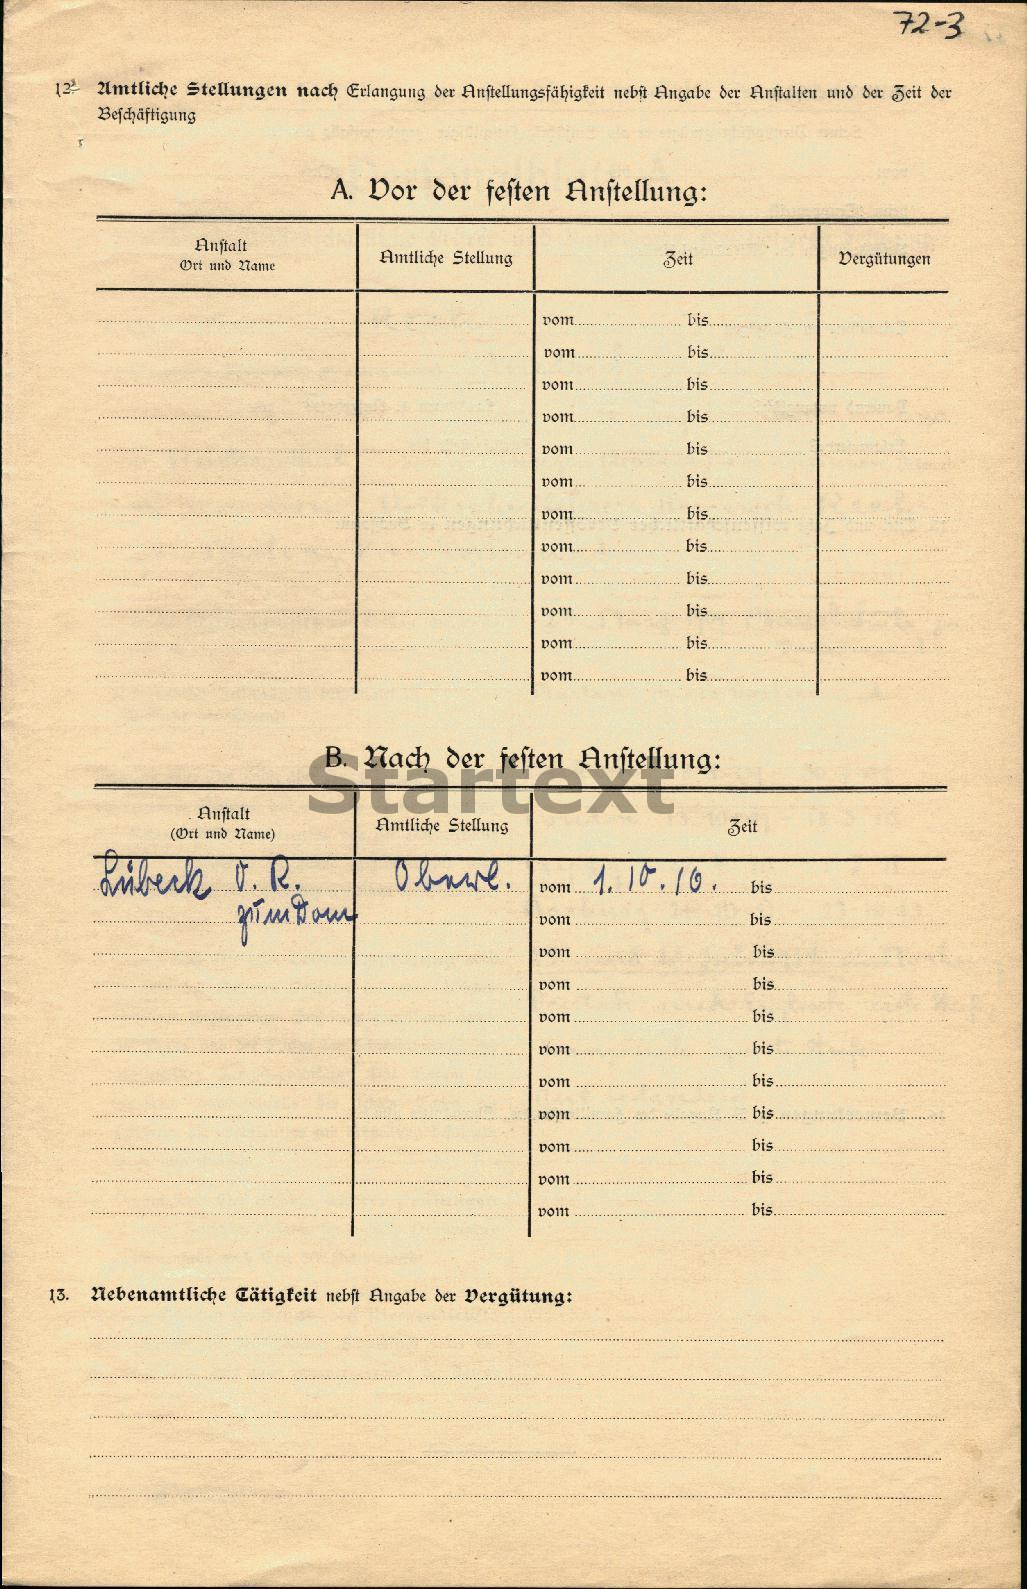 72-3
12. Amtliche Stellungen nach Erlangung der Anstellungsfähigkeit nebst Angabe der Anstalten und der Zeit der
Beschäftigung
A. Vor der festen Anstellung:
Anstalt
Ort und Name
Amtliche Stellung
Zeit
Vergütungen
vom bis
vom bis
vom bis
vom bis
vom bis
vom bis
vom bis
vom bis
vom bis
vom bis
vom bis
vom bis
B. Nach der festen Anstellung:
Startext
Anstalt
(Ort und Name)
Amtliche Stellung
Zeit
Lübeck O. R. Oberl. vom 1. 10. 10. bis
zum Dom vom bis
vom bis
vom bis
vom bis
vom bis
vom bis
vom bis
vom bis
vom bis
vom bis
13. Nebenamtliche Tätigkeit nebst Angabe der Vergütung: